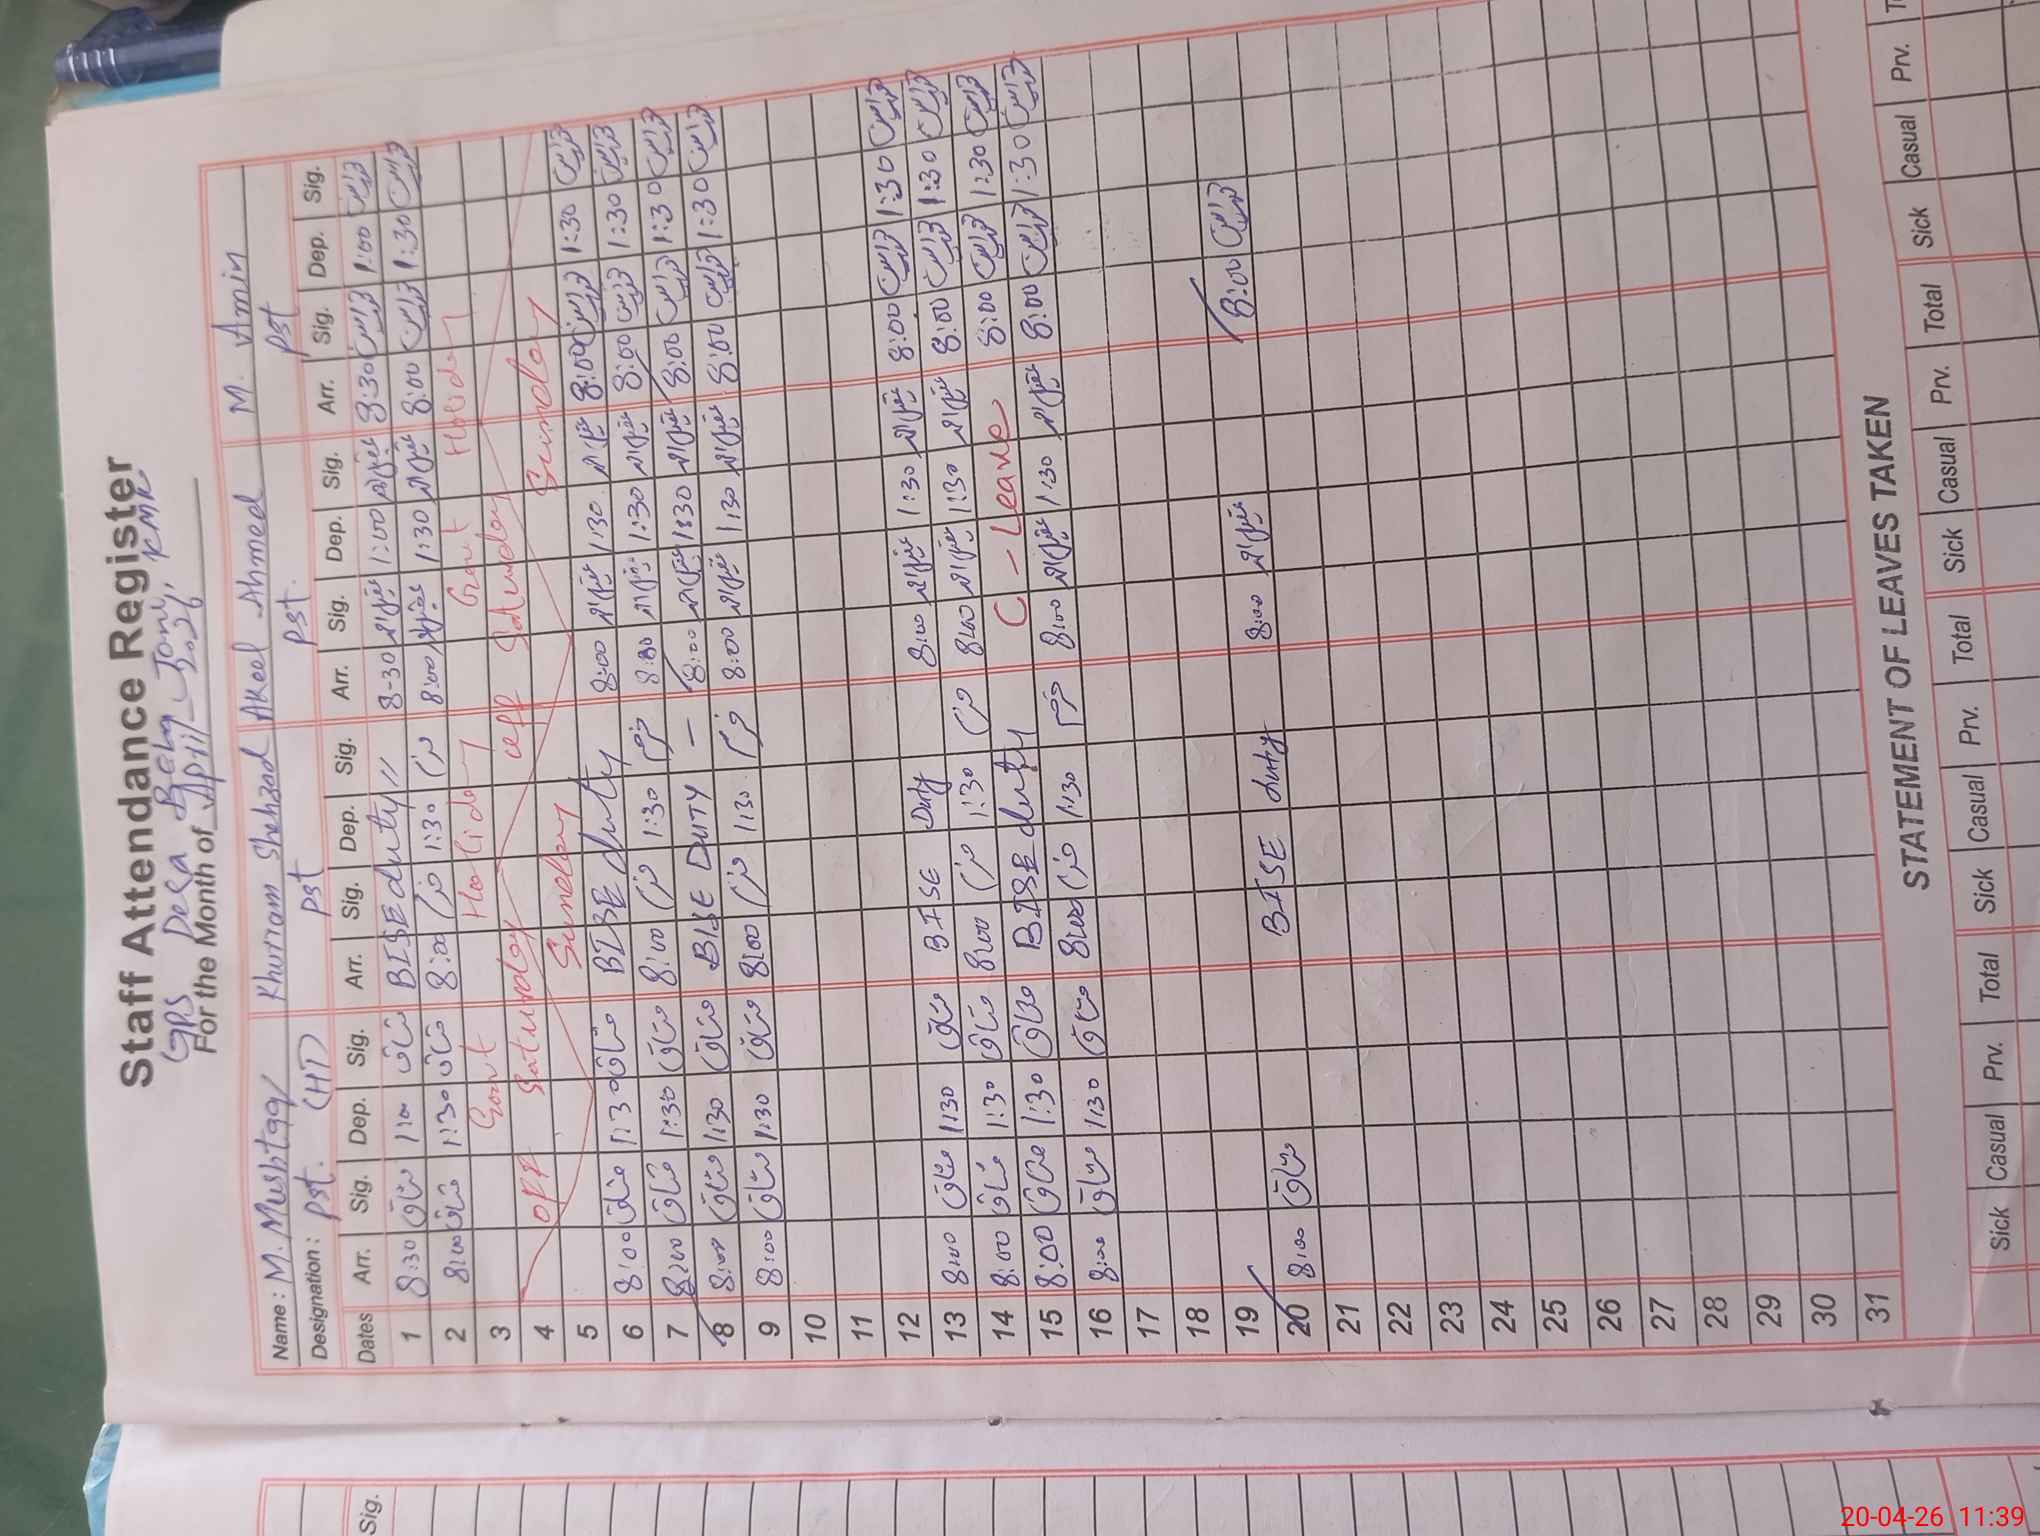 Staff Attendance Register
GPS Desa Bela Jony, KMK
For the Month of April 2026
Name: M. Mushtaq Khurram Shehzad Akeel Ahmed M. Amin
Designation: Pst. (HT) Pst Pst. Pst
Dates Arr. Sig. Dep. Sig. Arr. Sig. Dep. Sig. Arr. Sig. Dep. Sig. Arr. Sig. Dep. Sig.
1 8:30 مشتاق 1:00 مشتاق BISE duty // 8-30 1:00 8:30 1:00
2 8:00 مشتاق 1:30 مشتاق 8:00 1:30 8:00 1:30 8:00 1:30
3 Govt Holiday Govt Holiday
4 OFF Saturday off Saturday Sunday
5 Sunday
6 8:00 مشتاق 1:30 مشتاق BISE duty 8:00 1:30 8:00 1:30
7 8:00 مشتاق 1:30 مشتاق 8:00 1:30 1:30 8:00 1:30
8 8:00 مشتاق 1:30 مشتاق BISE DUTY — 8:00 1:30 8:00 1:30
9 8:00 مشتاق 1:30 مشتاق 8:00 1:30 8:00 1:30 8:00 1:30
10
11
12
13 8:00 مشتاق 1:30 مشتاق BISE Duty 8:00 1:30 8:00 1:30
14 8:00 مشتاق 1:30 مشتاق 8:00 1:30 8:00 1:30 8:00 1:30
15 8:00 مشتاق 1:30 مشتاق BISE duty C - Leave 8:00 1:30
16 8:00 مشتاق 1:30 مشتاق 8:00 1:30 8:00 1:30 8:00 1:30
17
18
19
20 8:00 مشتاق BISE duty 8:00 8:00
21
22
23
24
25
26
27
28
29
30
31
STATEMENT OF LEAVES TAKEN
Sick Casual Prv. Total Sick Casual Prv. Total Sick Casual Prv. Total Sick Casual Prv.
Sig.
20-04-26 11:39